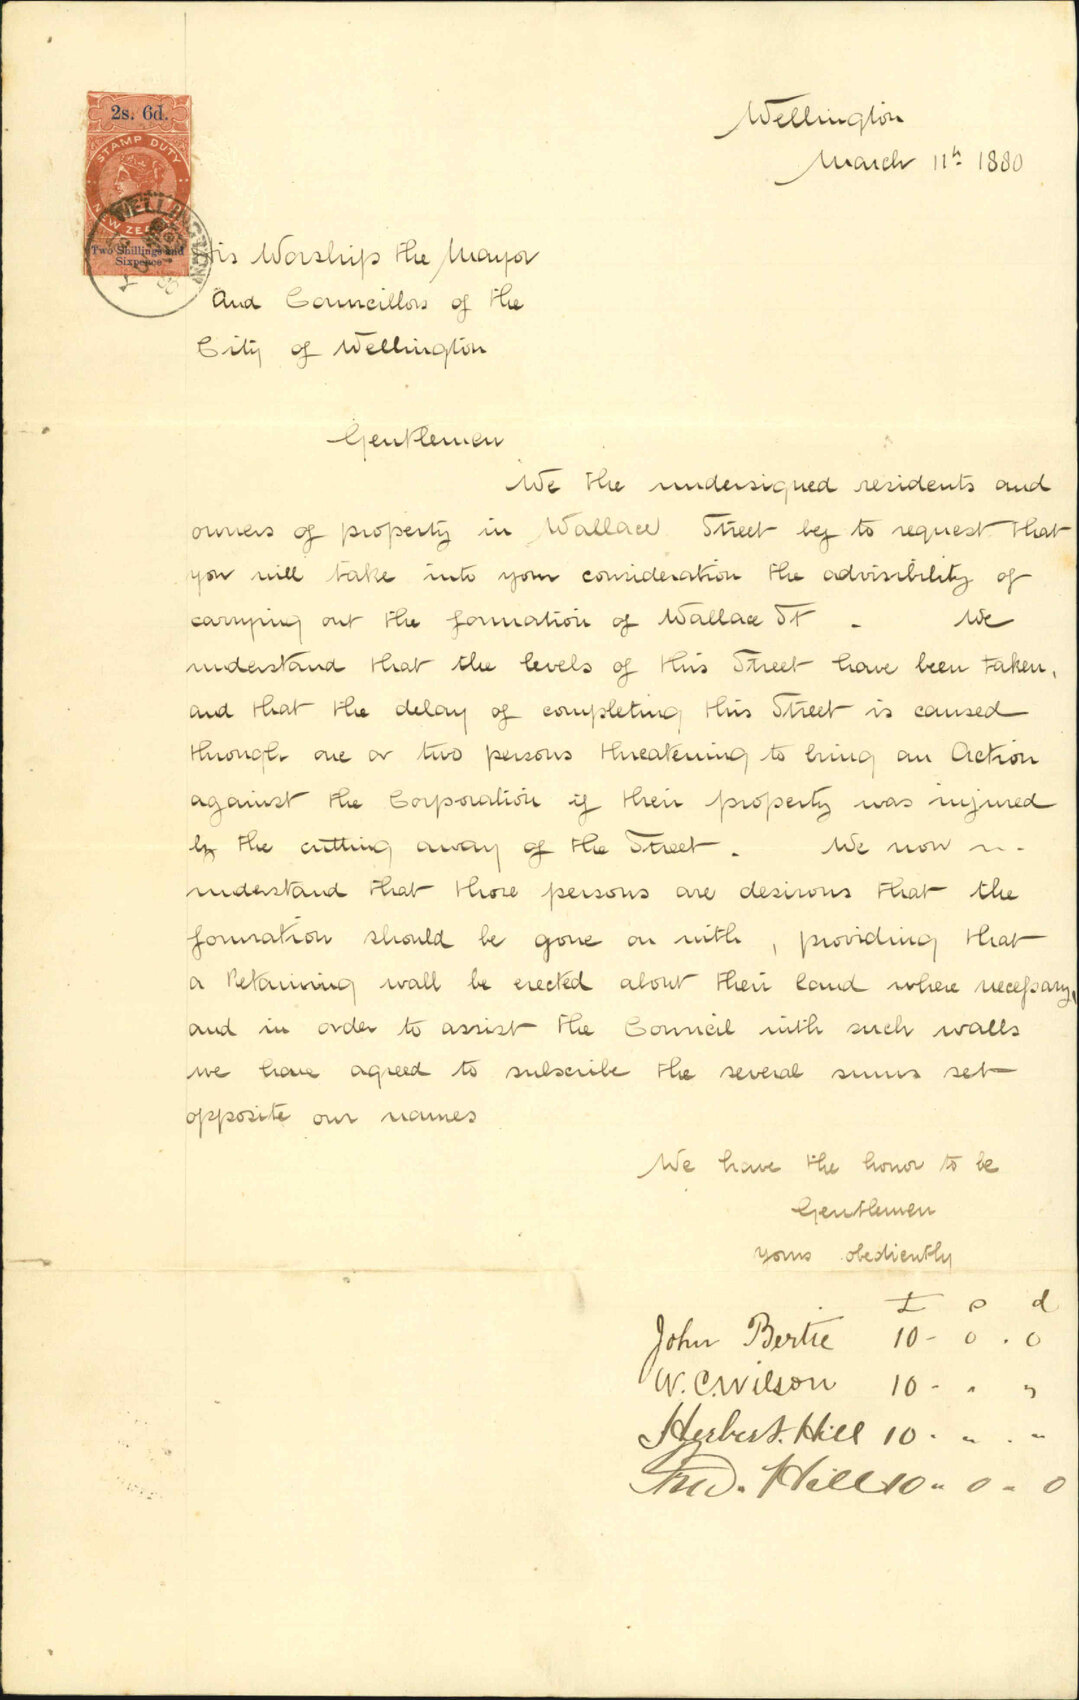 2s. 6d.
STAMP DUTY
NEW ZEALAND
Two Shillings and
Sixpence
WELLINGTON
Wellington
March 11th 1880
His Worship the Mayor
And Councillors of the
City of Wellington
Gentlemen
We the undersigned residents and
owners of property in Wallace Street beg to request that
you will take into your consideration the advisibility of
carrying out the formation of Wallace St - We
understand that the levels of this Street have been taken,
and that the delay of completing this Street is caused
through one or two persons threatening to bring an Action
against the Corporation if their property was injured
by the cutting away of the Street. We now
understand that those persons are desirous that the
formation should be gone on with, providing that
a Retaining wall be erected about their land where necessary,
and in order to assist the Council with such walls
we have agreed to subscribe the several sums set
opposite our names
We have the honor to be
Gentlemen
yours obediently
£ s d
John Bertie 10 - 0 . 0
W. C. Wilson 10 - " "
Herbert. Hill 10 - " - "
Fred. Hill 10 " 0 " 0